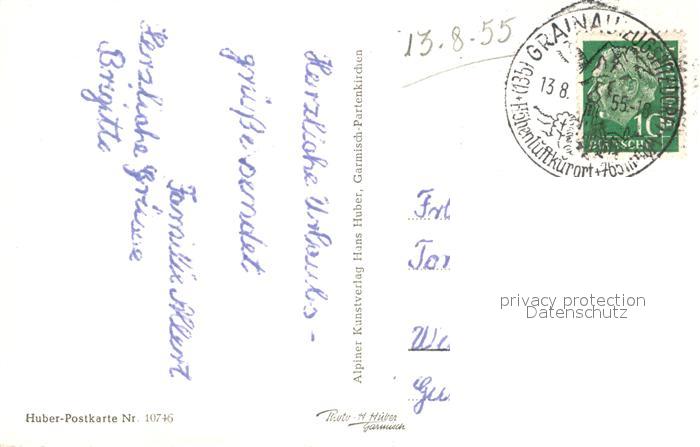 13.8.55
GRAINAU
(13b)
13.8.55.-18
Höhenluftkurort
10
DEUTSCHE
Herzliche Urlaubs-
grüße sendet
Familie Allert
Herzliche Grüsse
Brigitte
Alpiner Kunstverlag Hans Huber, Garmisch-Partenkirchen
privacy protection
Datenschutz
Huber-Postkarte Nr. 10746
Photo-H. Huber
Garmisch